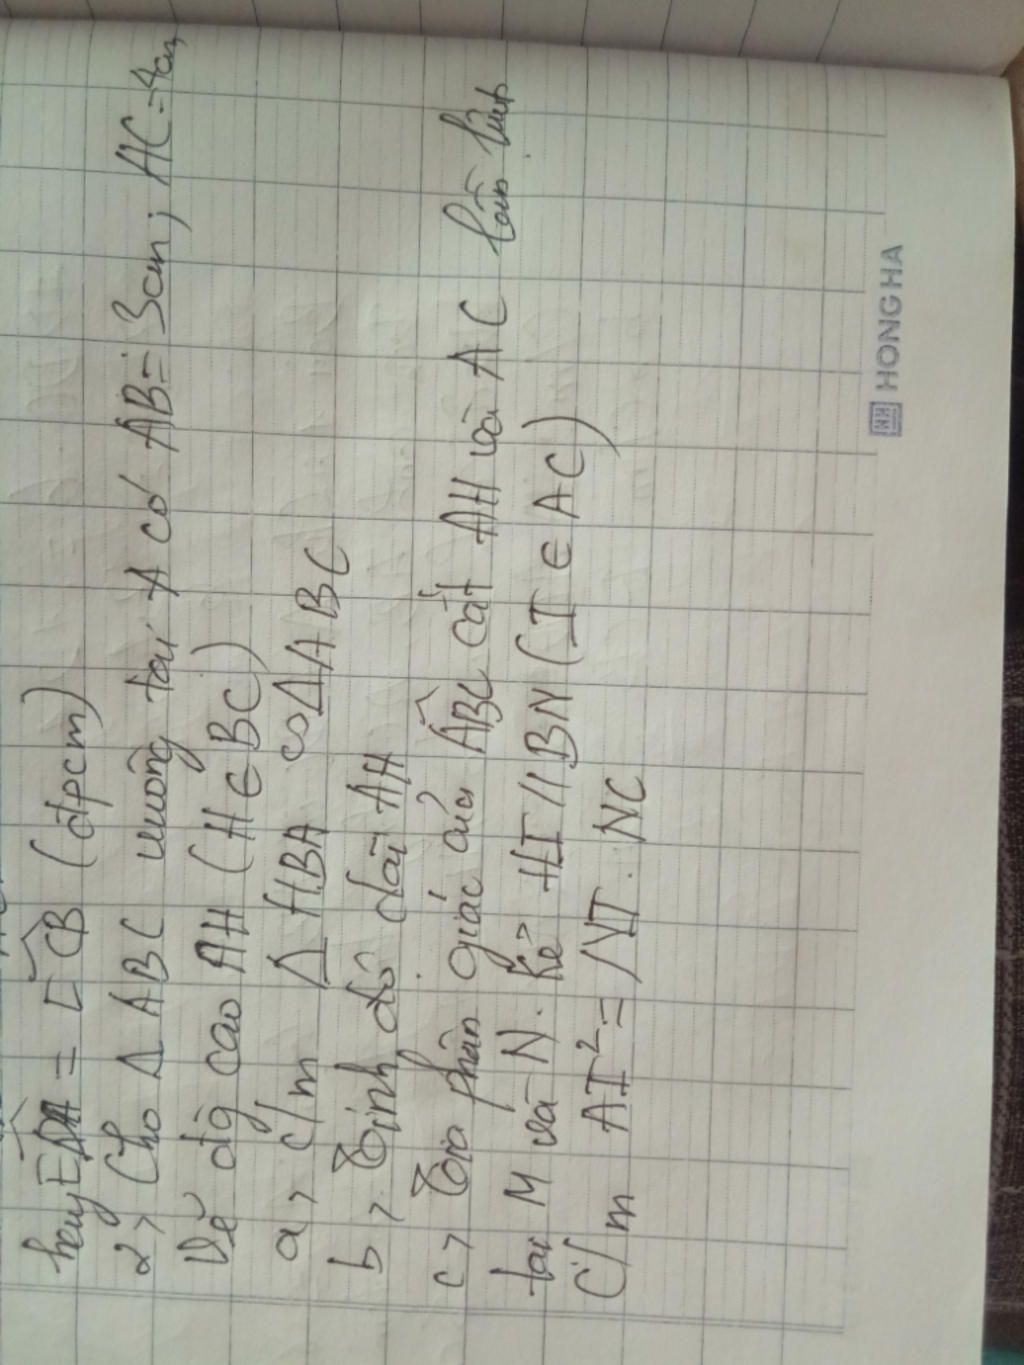 hay EDA = ECB (đpcm)
2> Cho Δ ABC vuông tại A có AB = 3cm; AC = 4cm
Vẽ đg cao AH (H ∈ BC)
a> c/m Δ HBA ∽ Δ ABC
b> Tính độ dài AH
c> Tia phân giác của ABC cắt AH và AC lần lượt
tại M và N. Kẻ HI // BN (I ∈ AC)
C/m AI² = NI . NC
HONG HA